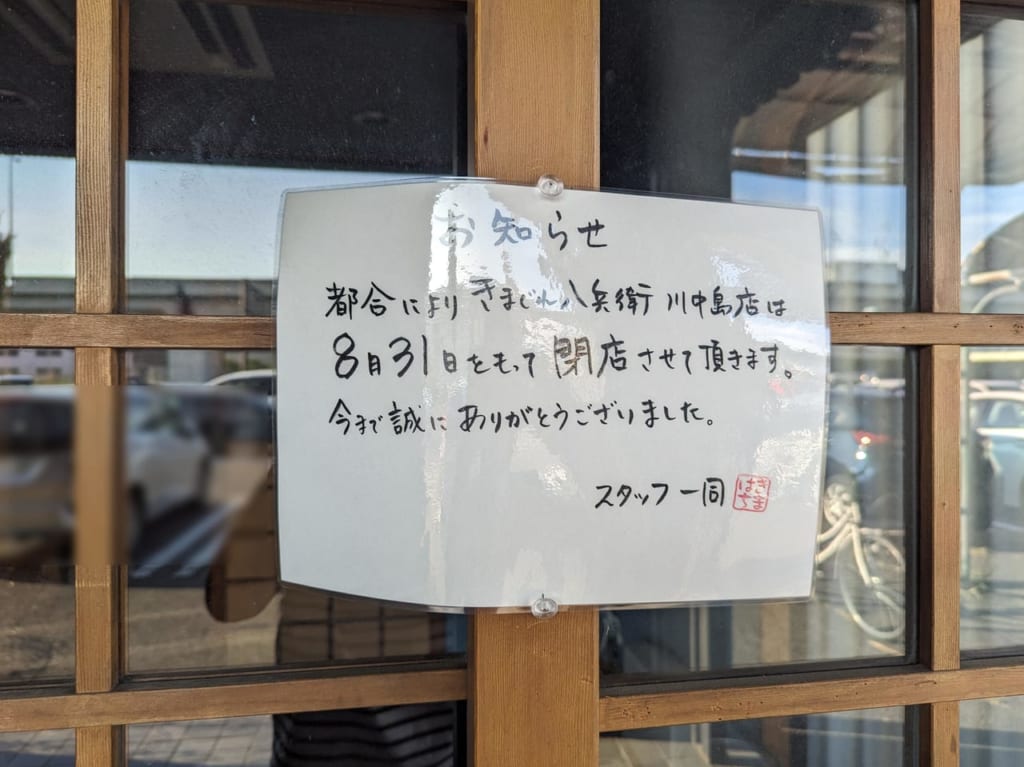 お知らせ
都合により きまぐれ八兵衛 川中島店は
8月31日をもって 閉店させて頂きます。
今まで誠に ありがとうございました。
スタッフ一同 きまはち